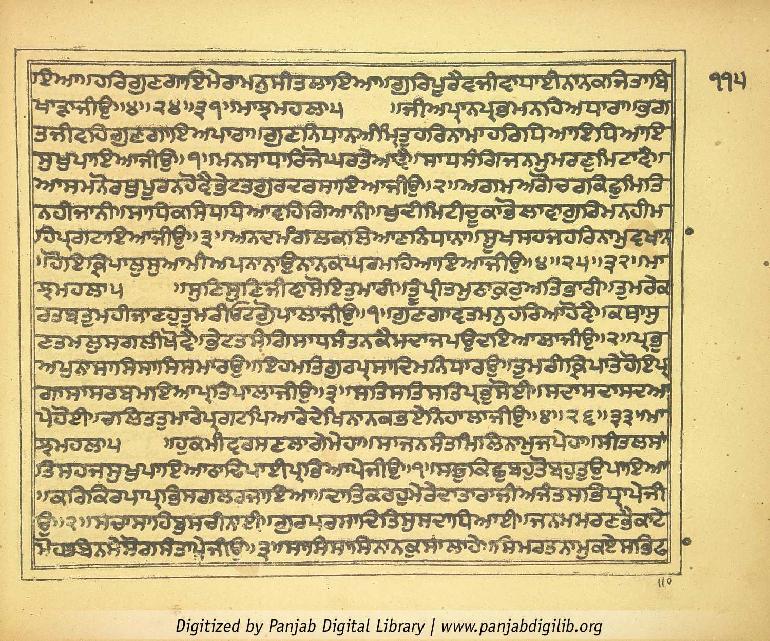 ਇਆ॥ਹਰਿਗੁਣਗਾਇਮੇਰਾਮਨੁਸੀਤਲਾਇਆ॥ਗੁਰਿਪੂਰੈਵਜੀਵਾਧਾਈਨਾਨਕਜਿਤਾਬਿ
ਖਾੜਾਜੀਉ॥੪॥੨੪॥੩੧॥ਮਾਝਮਹਲਾ੫ ॥ਜੀਅਪ੍ਰਾਨਪ੍ਰਭਮਨਹਿਅਧਾਰਾ॥ਭਗ
ਤਜੀਵਹਿਗੁਣਗਾਇਅਪਾਰਾ॥ਗੁਣਨਿਧਾਨਅੰਮ੍ਰਿਤੁਹਰਿਨਾਮਾਹਰਿਧਿਆਇਧਿਆਇ
ਸੁਖੁਪਾਇਆਜੀਉ॥੧॥ਮਨਸਾਧਾਰਿਜੋਘਰਤੇਆਵੈ॥ਸਾਧਸੰਗਿਜਨਮੁਮਰਣੁਮਿਟਾਵੈ॥
ਆਸਮਨੋਰਥੁਪੂਰਨਹੋਵੈਭੇਟਤਗੁਰਦਰਸਾਇਆਜੀਉ॥੨॥ਅਗਮਅਗੋਚਰਕਿਛੁਮਿਤਿ
ਨਹੀਜਾਨੀ॥ਸਾਧਿਕਸਿਧਧਿਆਵਹਿਗਿਆਨੀ॥ਖੁਦੀਮਿਟੀਚੂਕਾਭੋਲਾਵਾਗੁਰਿਮਨਹੀਮ
ਹਿਪ੍ਰਗਟਾਇਆਜੀਉ॥੩॥ਅਨਦਮੰਗਲਕਲਿਆਣਨਿਧਾਨਾ॥ਸੂਖਸਹਜਹਰਿਨਾਮੁਵਖਾਨਾ
॥ਹੋਇਕ੍ਰਿਪਾਲੁਸੁਆਮੀਅਪਨਾਨਾਉਨਾਨਕਘਰਮਹਿਆਇਆਜੀਉ॥੪॥੨੫॥੩੨॥ਮਾ
ਝਮਹਲਾ੫ ॥ਸੁਣਿਸੁਣਿਜੀਵਾਸੋਇਤੁਮਾਰੀ॥ਤੂੰਪ੍ਰੀਤਮੁਠਾਕੁਰੁਅਤਿਭਾਰੀ॥ਤੁਮਰੇਕ
ਰਤਬਤੁਮਹੀਜਾਣਹੁਤੁਮਰੀਓਟਗੋੁਪਾਲਾਜੀਉ॥੧॥ਗੁਣਗਾਵਤਮਨੁਹਰਿਆਹੋਵੈ॥ਕਥਾਸੁ
ਣਤਮਲੁਸਗਲੀਖੋਵੈ॥ਭੇਟਤਸੰਗਿਸਾਧਸੰਤਨਕੈਸਦਾਜਪਉਦਇਆਲਾਜੀਉ॥੨॥ਪ੍ਰਭੁ
ਅਪੁਨਾਸਾਸਿਸਾਸਿਸਮਾਰਉ॥ਇਹਮਤਿਗੁਰਪ੍ਰਸਾਦਿਮਨਿਧਾਰਉ॥ਤੁਮਰੀਕ੍ਰਿਪਾਤੇਹੋਇਪ੍ਰ
ਗਾਸਾਸਰਬਮਇਆਪ੍ਰਤਿਪਾਲਾਜੀਉ॥੩॥ਸਤਿਸਤਿਸਤਿਪ੍ਰਭੁਸੋਈ॥ਸਦਾਸਦਾਸਦਆ
ਪੇਹੋਈ॥ਚਲਿਤਤੁਮਾਰੇਪ੍ਰਗਟਪਿਆਰੇਦੇਖਿਨਾਨਕਭਏਨਿਹਾਲਾਜੀਉ॥੪॥੨੬॥੩੩॥ਮਾ
ਝਮਹਲਾ੫ ॥ਹੁਕਮੀਵਰਸਣਲਾਗੇਮੇਹਾ॥ਸਾਜਨਸੰਤਮਿਲਿਨਾਮੁਜਪੇਹਾ॥ਸੀਤਲਸਾਂ
ਤਿਸਹਜਸੁਖੁਪਾਇਆਠਾਢਿਪਾਈਪ੍ਰਭਿਆਪੇਜੀਉ॥੧॥ਸਭੁਕਿਛੁਬਹੁਤੋਬਹੁਤੁਉਪਾਇਆ
॥ਕਰਿਕਿਰਪਾਪ੍ਰਭਿਸਗਲਰਜਾਇਆ॥ਦਾਤਿਕਰਹੁਮੇਰੇਦਾਤਾਰਾਜੀਅਜੰਤਸਭਿਧ੍ਰਾਪੇਜੀ
ਉ॥੨॥ਸਚਾਸਾਹਿਬੁਸਚੀਨਾਈ॥ਗੁਰਪਰਸਾਦਿਤਿਸੁਸਦਾਧਿਆਈ॥ਜਨਮਮਰਣਭੈਕਾਟੇ
ਮੋਹਾਬਿਨਸੇਸੋਗਸੰਤਾਪੇਜੀਉ॥੩॥ਸਾਸਿਸਾਸਿਨਾਨਕੁਸਾਲਾਹੇ॥ਸਿਮਰਤਨਾਮੁਕਾਟੇਸਭਿਫ
੧੧੫
110
Digitized by Panjab Digital Library | www.panjabdigilib.org